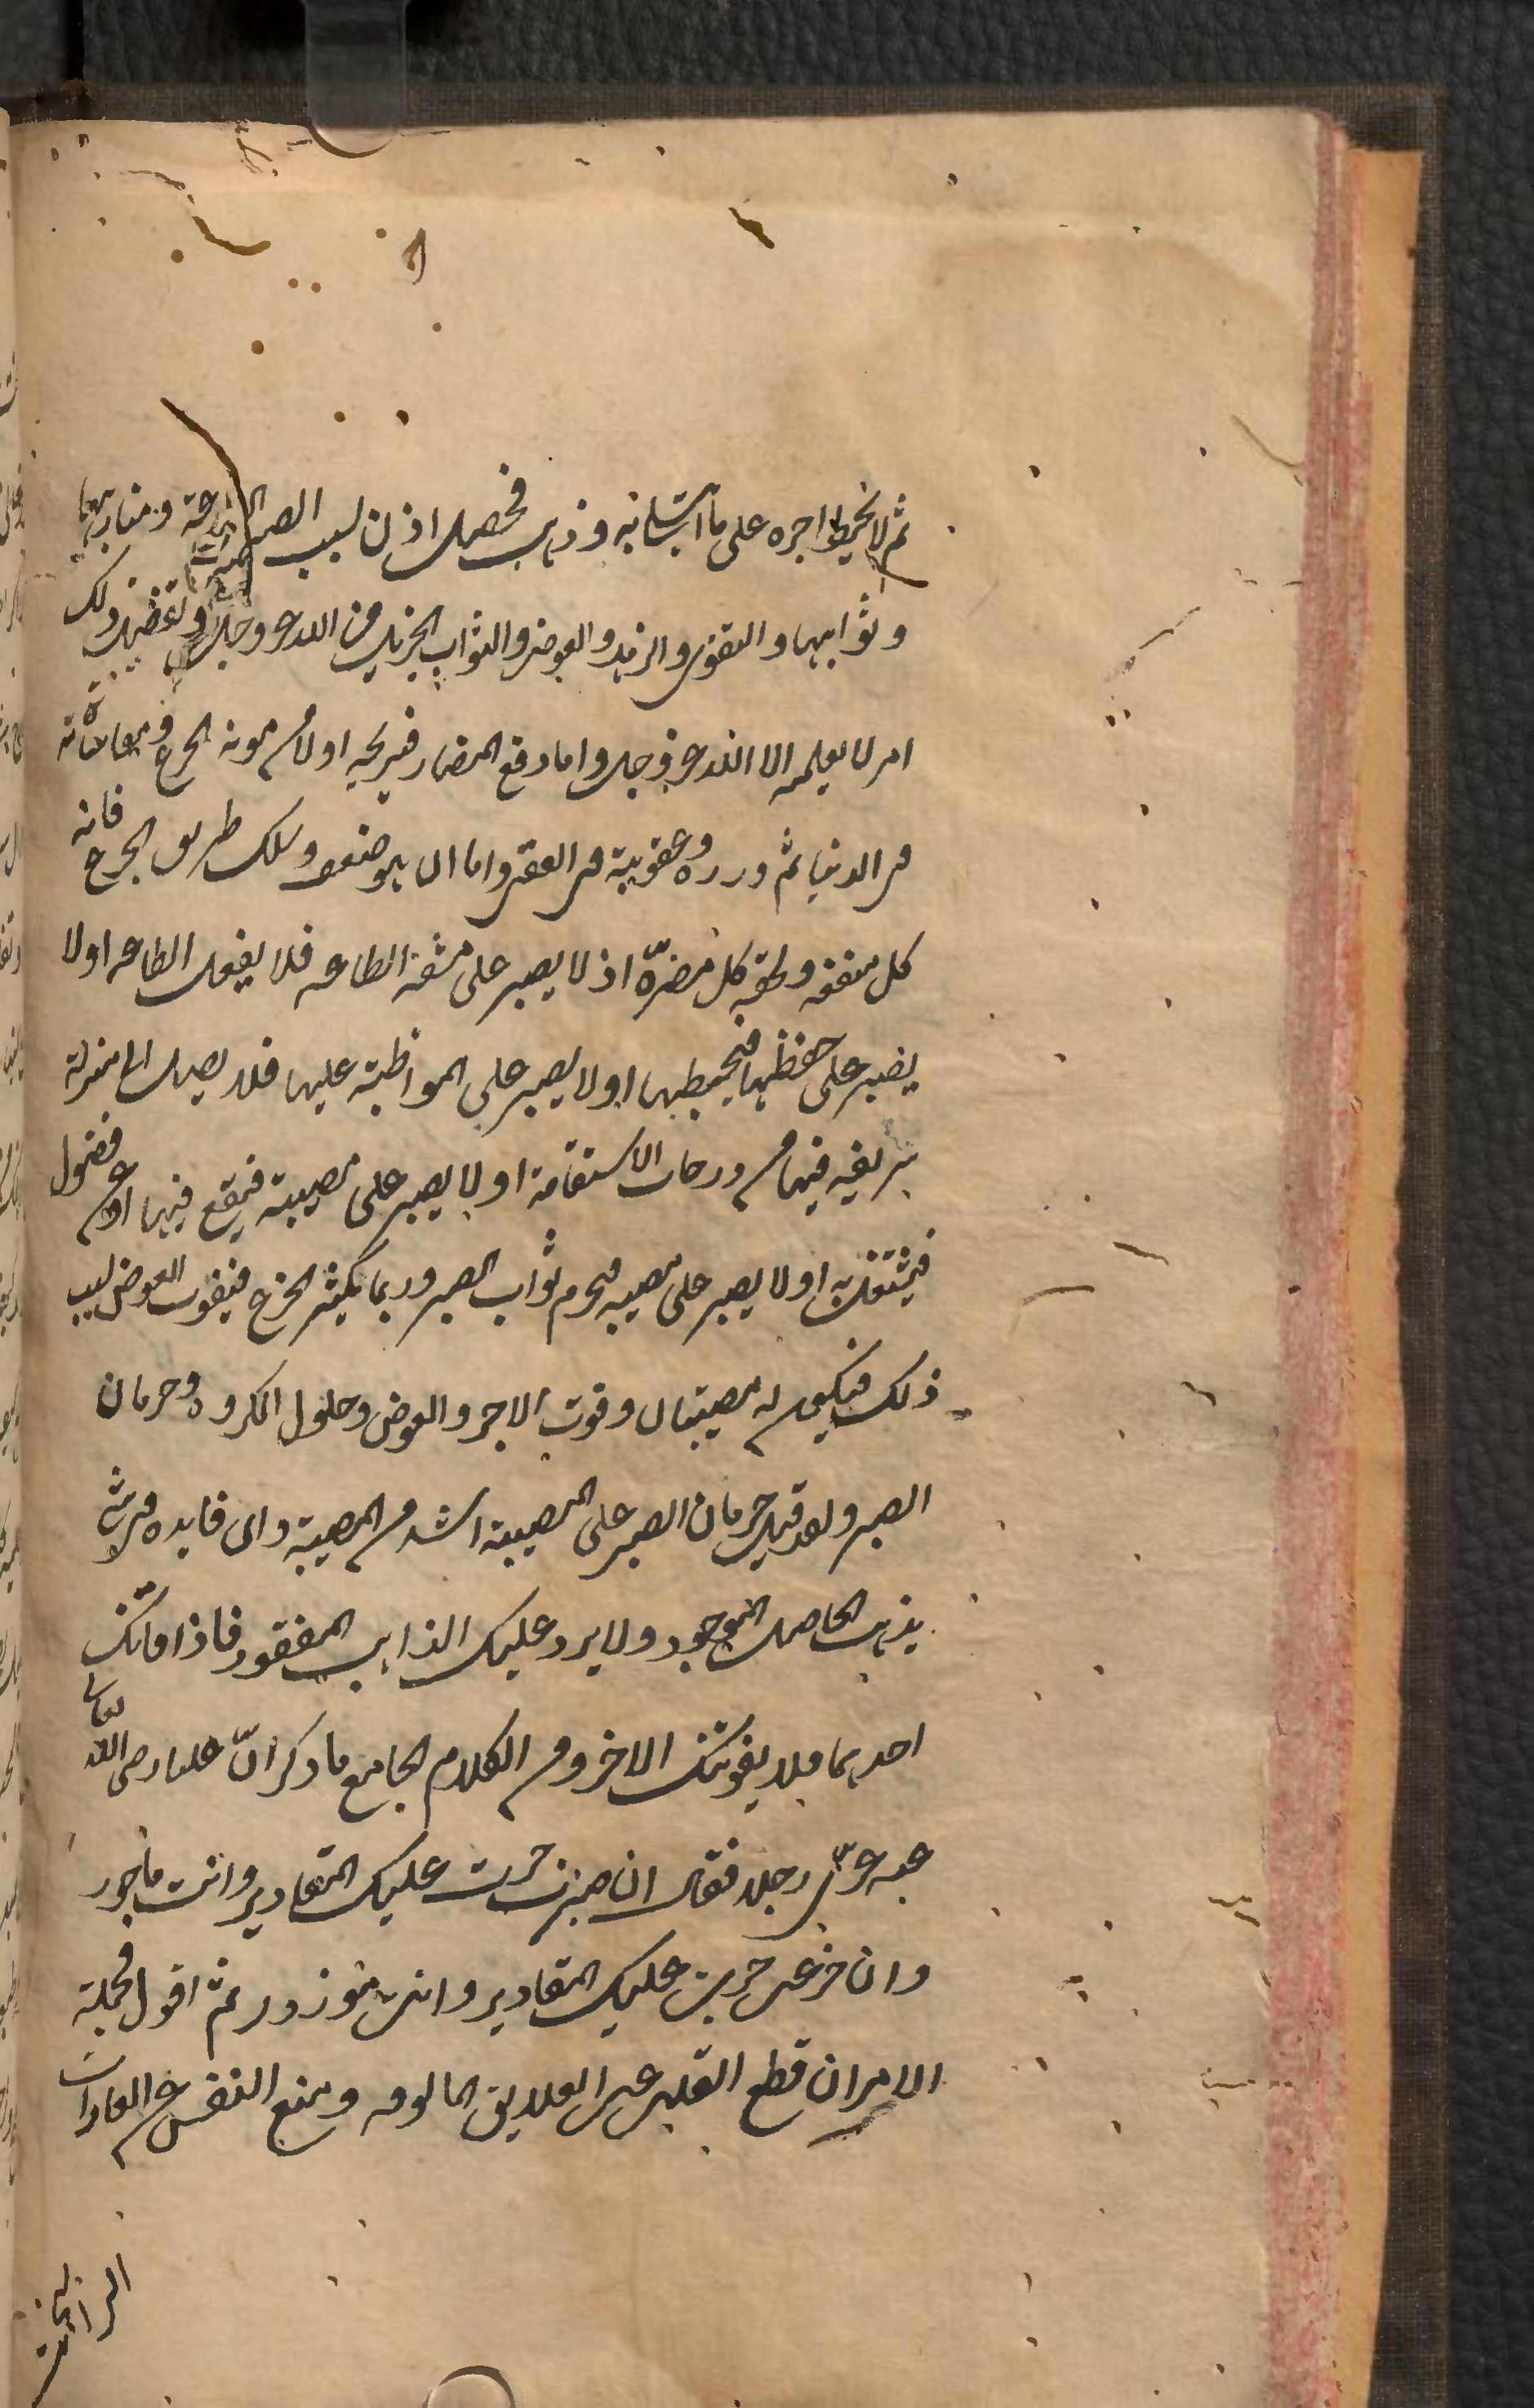 ثم لا يحبط اجره على ما استانه وذهب فحصل اذن بسبب الصبر الطاعة ومنازلهما
وثوابهما والتقوى والزهد والعوض والثواب الجزيل من الله عز وجل وتفضيل ذلك
امر لا يعلمه الا الله عز وجل واما دفع المضار فيريحه اولا من مونة الجزع ومعاناته
فى الدنيا ثم وزره وعقوبته فى العقبى واما ان هو ضعف وسلك طريق الجزع فاته
كل منفعه ولحقه كل مضرّة اذ لا يصبر على مشقة الطاعه فلا يفعل الطاعه اولا
يصبر على حفظها فيحبطها اولا يصبر على المواظبة عليها فلا يصل الى منزلة
شريفه فيها من درجات الاستقامة اولا يصبر على معصية فيقع فيها او عن فضول
فيشتغل به اولا يصبر على مصيبه فيحرم ثواب الصبر وربما يكثر الجزع فيفوت العوض بسبب
ذلك فيكون له مصيبتان وفوت الاجر والعوض وحلول المكروه وحرمان
الصبر ولقد قيل حرمان الصبر على المصيبة اشد من المصيبة واى فايده فى شئ
يذهب الحاصل الموجود ولا يرد عليك الذاهب المفقود فاذا فاتك
احدهما فلا يفوتك الاخر ومن الكلام الجامع ما ذكر انّ عليا رضى الله تعالى
عنه عزّى رجلا فقال ان صبرت جرت عليك المقادير وانت ماجور
وان جزعت جرت عليك المقادير وانت موزور ثم اقول فجملة
الامر ان قطع القلب عن العلايق المالوفه ومنع النفس عن العادات
الراتبة